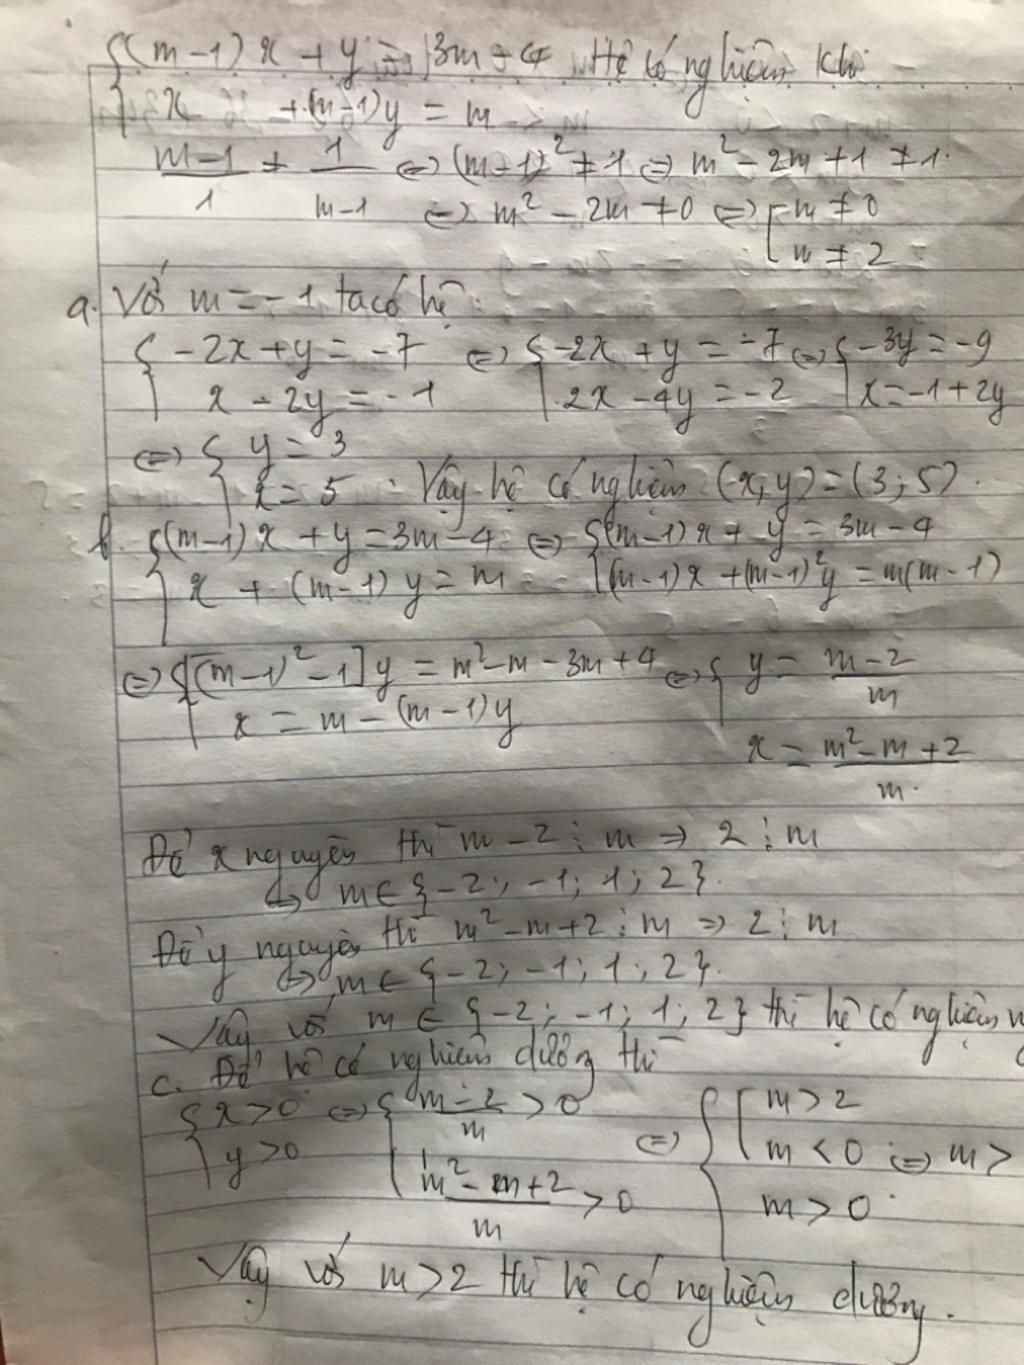 {(m-1)x + y = 3m - 4 Hệ có nghiệm khi
x + (m-1)y = m
(m-1)/1 ≠ 1/(m-1) ⇔ (m-1)² ≠ 1 ⇔ m² - 2m + 1 ≠ 1
⇔ m² - 2m ≠ 0 ⇔ [m ≠ 0
m ≠ 2
a. Với m = -1 ta có hệ:
{-2x + y = -7 ⇔ {-2x + y = -7 ⇔ {-3y = -9
x - 2y = -1 2x - 4y = -2 x = -1 + 2y
⇔ { y = 3
x = 5. Vậy hệ có nghiệm (x; y) = (3; 5).
b. {(m-1)x + y = 3m - 4 ⇔ {(m-1)x + y = 3m - 4
x + (m-1)y = m (m-1)x + (m-1)²y = m(m-1)
⇔ {[(m-1)² - 1]y = m² - m - 3m + 4 ⇔ { y = (m-2)/m
x = m - (m-1)y
x = (m² - m + 2)/m.
Để x nguyên thì m - 2 ⋮ m ⇒ 2 ⋮ m
↪ m ∈ {-2; -1; 1; 2}.
Để y nguyên thì m² - m + 2 ⋮ m ⇒ 2 ⋮ m
↪ m ∈ {-2; -1; 1; 2}.
Vậy với m ∈ {-2; -1; 1; 2} thì hệ có nghiệm n
c. Để hệ có nghiệm dương thì
{x > 0 ⇔ {(m-2)/m > 0 ⇔ {[m > 2
y > 0 (m² - m + 2)/m > 0 m < 0 ⇔ m >
m > 0.
Vậy với m > 2 thì hệ có nghiệm dương.